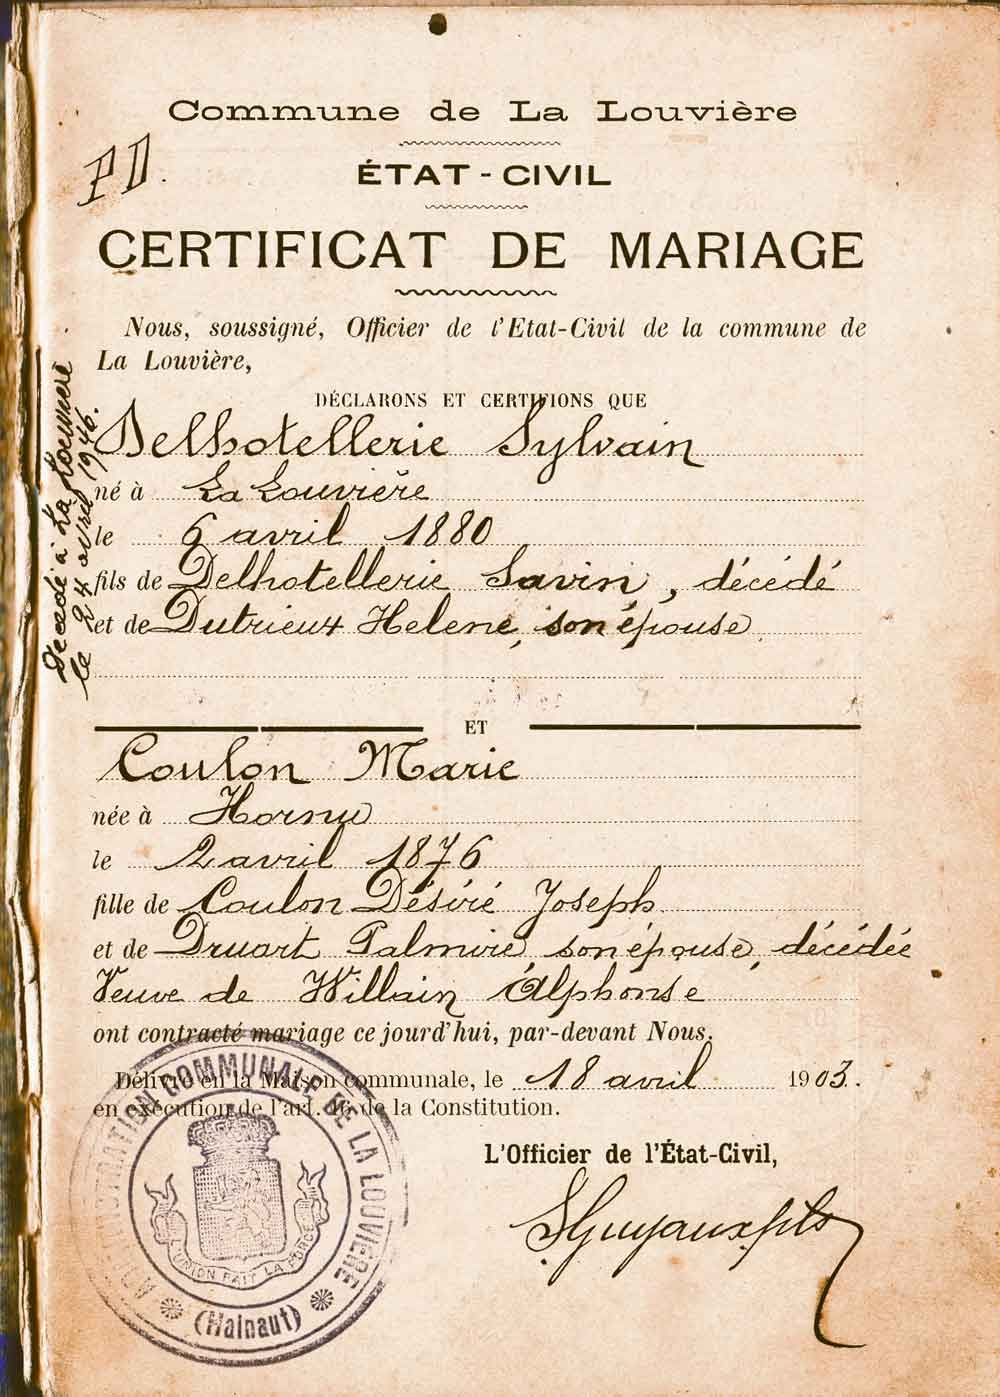 Commune de La Louvière
PD.
ÉTAT-CIVIL
CERTIFICAT DE MARIAGE
Nous, soussigné, Officier de l'Etat-Civil de la commune de
La Louvière,
DÉCLARONS ET CERTIFIONS QUE
Delhotellerie Sylvain
né à La Louvière
le 6 avril 1880
fils de Delhotellerie Savin, décédé
et de Dutrieux Helene, son épouse
Décédé à La Louvière
le 24 avril 1946.
ET
Coulon Marie
née à Hornu
le 2 avril 1876
fille de Coulon Désiré Joseph
et de Druart Palmire, son épouse, décédée
Veuve de Willain Alphonse
ont contracté mariage ce jourd'hui, par-devant Nous.
Délivré en la Maison communale, le 18 avril 1903.
en exécution de l'art. 16 de la Constitution.
L'Officier de l'État-Civil,
ADMINISTRATION COMMUNALE DE LA LOUVIÈRE
L'UNION FAIT LA FORCE
(Hainaut)